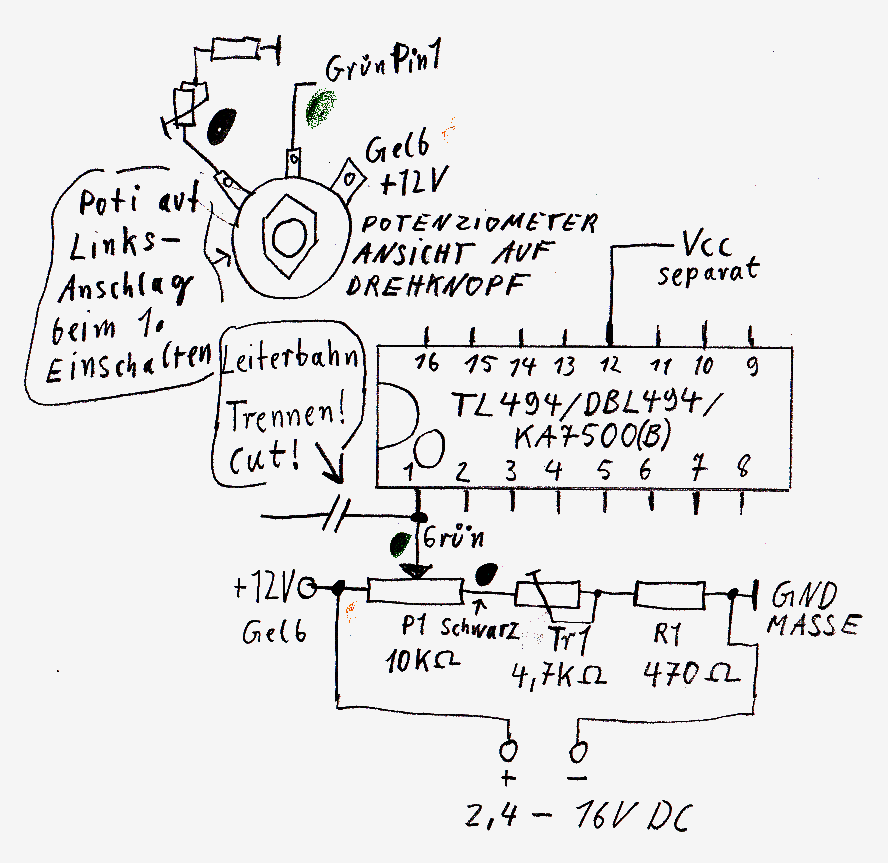 Grün Pin 1
Gelb
+12V
Poti auf
Links-
Anschlag
beim 1.
Einschalten
POTENZIOMETER
ANSICHT AUF
DREHKNOPF
Vcc
separat
Leiterbahn
Trennen!
Cut!
16 15 14 13 12 11 10 9
TL494/DBL494/
KA7500(B)
1 2 3 4 5 6 7 8
Grün
+12V
Gelb
P1 Schwarz
10KΩ
Tr1
4,7KΩ
R1
470Ω
GND
MASSE
+ −
2,4 - 16V DC